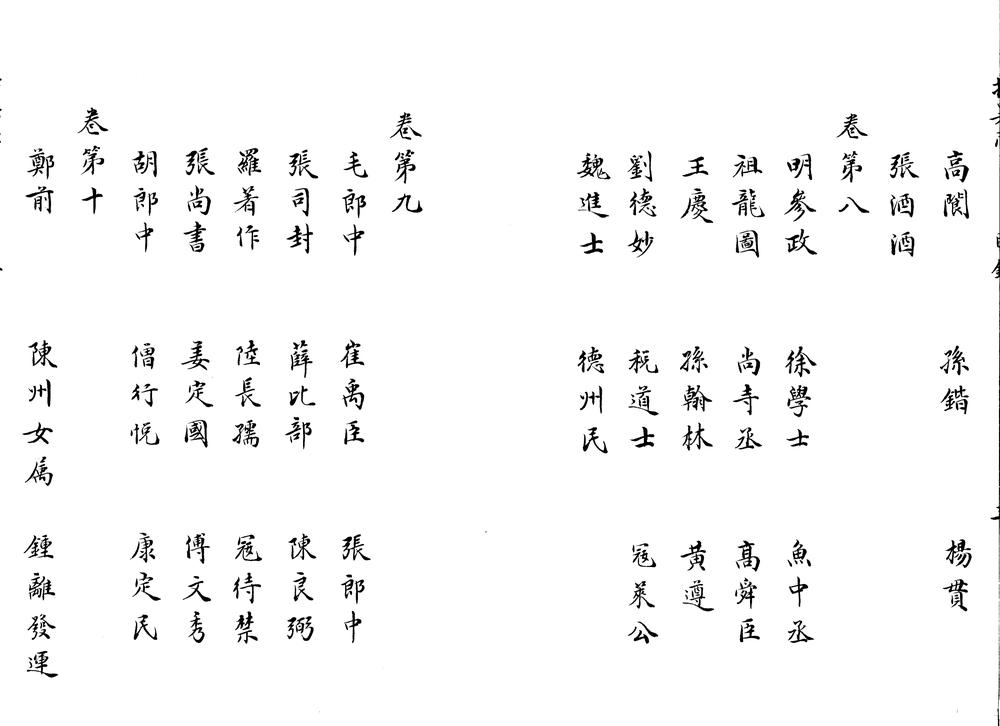 高閬　孫鍇　楊貫
張酒酒
卷第八
明參政　徐學士　魚中丞
祖龍圖　尚寺丞　高舜臣
王慶　孫翰林　黄遵
劉德妙　税道士　寇萊公
魏進士　德州民
卷第九
毛郎中　崔禹臣　張郎中
張司封　薛比部　陳良弼
羅著作　陸長孺　寇待禁
張尚書　姜定國　傅文秀
胡郎中　僧行悦　康定民
卷第十
鄭前　陳州女厲　鍾離發運